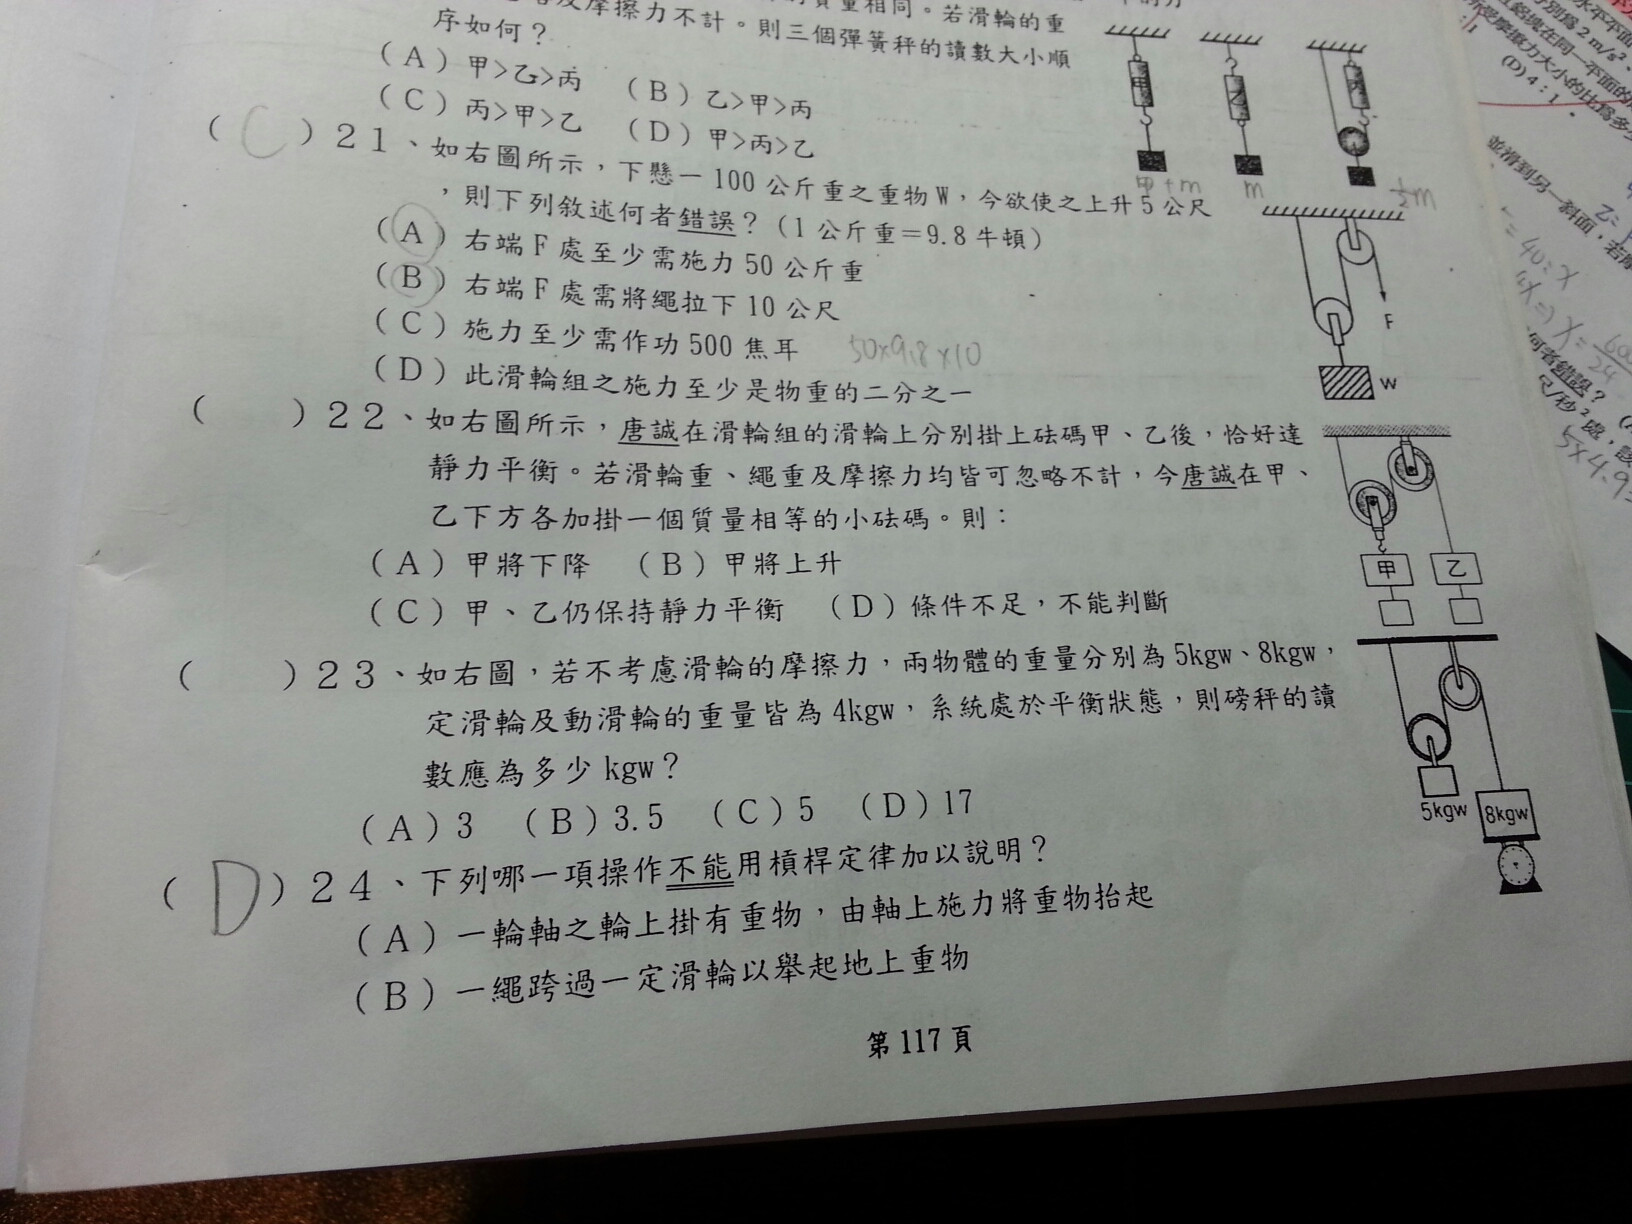 及摩擦力不計。則三個彈簧秤的讀數大小順
質量相同。若滑輪的重
序如何？
(A) 甲>乙>丙 (B) 乙>甲>丙
(C) 丙>甲>乙 (D) 甲>丙>乙
甲 乙 丙
甲+m m ½m
( C ) 21、如右圖所示，下懸一 100 公斤重之重物W，今欲使之上升5公尺
，則下列敘述何者錯誤？(1公斤重＝9.8牛頓)
(A) 右端F處至少需施力50公斤重
(B) 右端F處需將繩拉下10公尺
(C) 施力至少需作功500焦耳 50×9.8×10
(D) 此滑輪組之施力至少是物重的二分之一
F
W
( ) 22、如右圖所示，唐誠在滑輪組的滑輪上分別掛上砝碼甲、乙後，恰好達
靜力平衡。若滑輪重、繩重及摩擦力均皆可忽略不計，今唐誠在甲、
乙下方各加掛一個質量相等的小砝碼。則：
(A) 甲將下降 (B) 甲將上升
(C) 甲、乙仍保持靜力平衡 (D) 條件不足，不能判斷
甲 乙
( ) 23、如右圖，若不考慮滑輪的摩擦力，兩物體的重量分別為5kgw、8kgw，
定滑輪及動滑輪的重量皆為4kgw，系統處於平衡狀態，則磅秤的讀
數應為多少kgw？
(A) 3 (B) 3.5 (C) 5 (D) 17
5kgw 8kgw
( D ) 24、下列哪一項操作不能用槓桿定律加以說明？
(A) 一輪軸之輪上掛有重物，由軸上施力將重物抬起
(B) 一繩跨過一定滑輪以舉起地上重物
第117頁
水平平面
別為2m/s²、
鋁塊在同一平面的
所受摩擦力大小的比為多少
(D) 4：1。
並滑到另一斜面，若摩
= 40：x
何者錯誤？
尺/秒²處，設
5×4.9